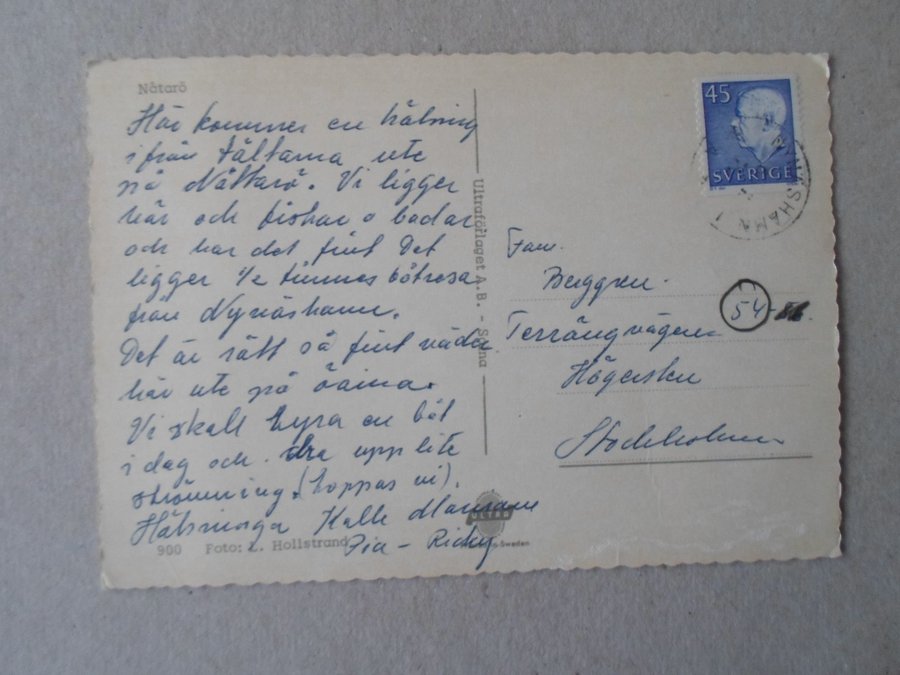 Nåtarö
Här kommer en hälsning
ifrån tältarna ute
på Nåttarö. Vi ligger
här och fiskar o badar
och har det fint Det
ligger 1/2 timmes båtresa
från Nynäshamn.
Det är rätt så fint väder
här ute på öarna.
Vi skall hyra en båt
idag och dra upp lite
strömming. (hoppas vi).
Hälsninga Kalle Mamman
Pia - Ricky
900 Foto: L. Hollstrand
Ultraförlaget A.B. - Solna
ULTRA
Sweden
45
SVERIGE
NYNÄSHAMN 1
Fam.
Berggren.
54-86.
Terrängvägen
Hägersten
Stockholm